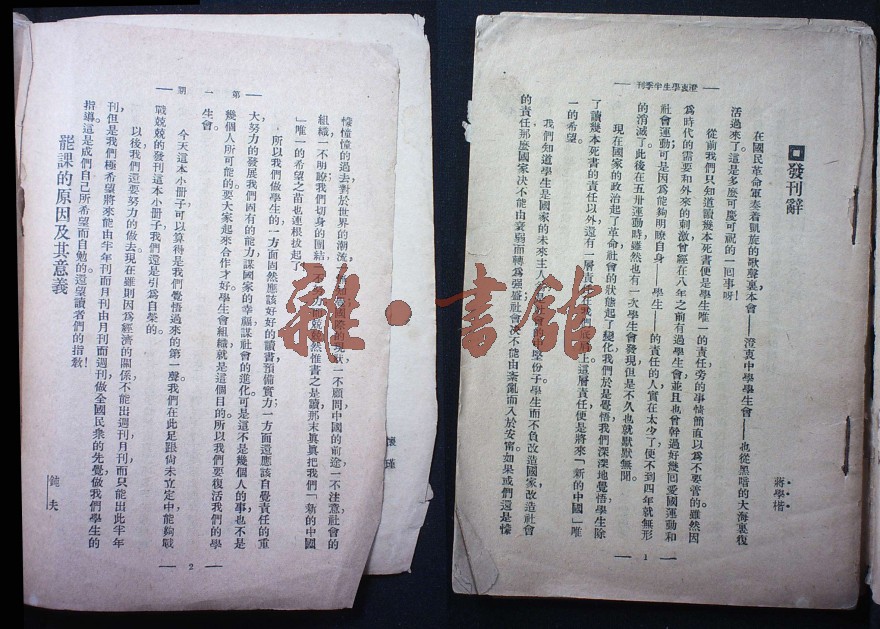 澄衷學生半季刊
發刊辭
蔣學楷
在國民革命軍奏着凱旋的歌聲裏本會——澄衷中學學生會——也從黑暗的大海裏復
活過來了。這是多麽可慶可祝的一回事呀!
從前我們只知道讀幾本死書便是學生唯一的責任,旁的事情簡直以爲不要管的。雖然因
爲時代的需要和外來的刺激,曾經在八年之前有過學生會並且也曾幹過好幾回愛國運動和
社會運動;可是因爲能夠明瞭自身——學生——的責任的人,實在太少了,便不到四年就無形
的消滅了。此後在五卅運動時,雖然也有一次學生會發現,但是不久也就默默無聞。
現在國家的政治起了革命,社會的狀態起了變化,我們於是覺悟,我們深深地覺悟:學生除
了讀幾本死書的責任以外,還有一層責任在我們肩膀上,這層責任便是將來「新的中國」唯
一的希望。
我們知道學生是國家的未來主人,
中堅份子,學生而不負改造國家,改造社會
的責任,那麽國家決不能由衰弱而轉爲强盛,社會決不能由紊亂而入於安甯。如果我們還是懞
1
第一期
懞憧憧的過去,對於世界的潮流,
不顧問,中國的前途,一不注意,社會的
組織,一不明瞭,我們切身的團結,
惟書之是讀,那末眞眞把我們「新的中國
」唯一的希望之苗也連根拔起了。
所以我們做學生的,一方面固然應該好好的讀書,預備實力;一方面還應該自覺責任的重
大,努力的發展我們固有的能力,謀國家的幸福,謀社會的進化。可是這不是幾個人的事,也不是
幾個人所可能的。要大家起來合作才好。學生會組織就是這個目的。所以我們要復活我們的學
生會。
今天這本小冊子,可以算得是我們覺悟過來的第一聲。我們在此足跟尙未立定中,能夠戰
戰兢兢的發刊這本小冊子,我們還是引爲自榮的。
以後我們還要努力的做去。現在雖則因爲經濟的關係,不能出週刊月刊,而只能出此半年
刊,但是我們極希望將來能由半年刊而月刊,由月刊而週刊,做全國民衆的先覺,做我們學生的
指導。這是成們自己所希望而自勉的,還望讀者們的指敎!
罷課的原因及其意義
鈍夫
2
懷瑾
雜·書館